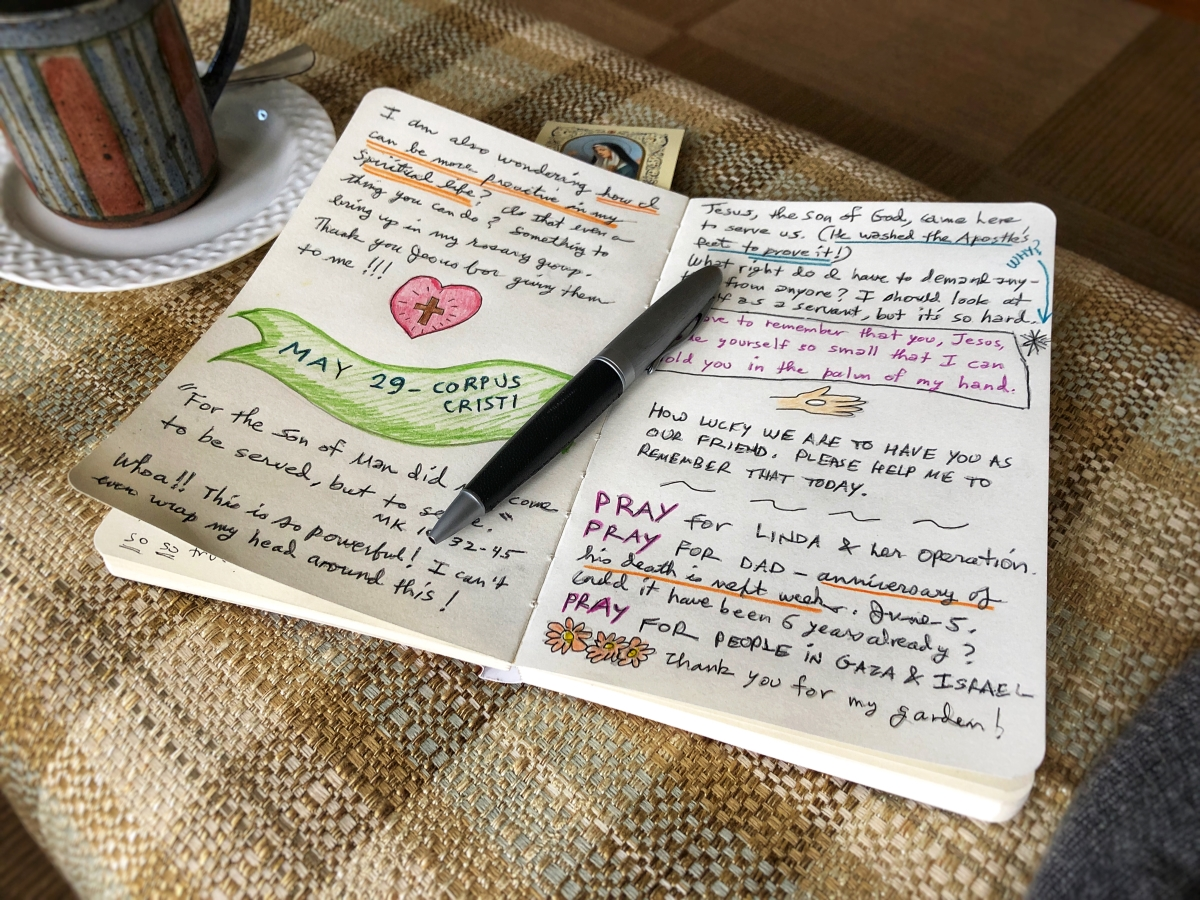 I am also wondering how I
can be more proactive in my
Spiritual life? Is that even a
thing you can do? Something to
bring up in my rosary group.
Thank you Jesus for giving them
to me !!!
MAY 29 - CORPUS
CRISTI
"For the Son of Man did come
to be served, but to serve."
MK 32-45
Whoa!! This is so powerful! I can't
even wrap my head around this!
so so
Jesus, the son of God, came here
to serve us. (He washed the Apostle's
feet to prove it!)
WHY?
What right do I have to demand any-
from anyone? I should look at
as a servant, but it's so hard.
to remember that you, Jesus,
yourself so small that I can
you in the palm of my hand.
HOW LUCKY WE ARE TO HAVE YOU AS
OUR FRIEND. PLEASE HELP ME TO
REMEMBER THAT TODAY.
PRAY for LINDA & her operation.
PRAY FOR DAD - anniversary of
his death is next week. June 5.
Could it have been 6 years already?
PRAY FOR PEOPLE IN GAZA & ISRAEL
Thank you for my garden!